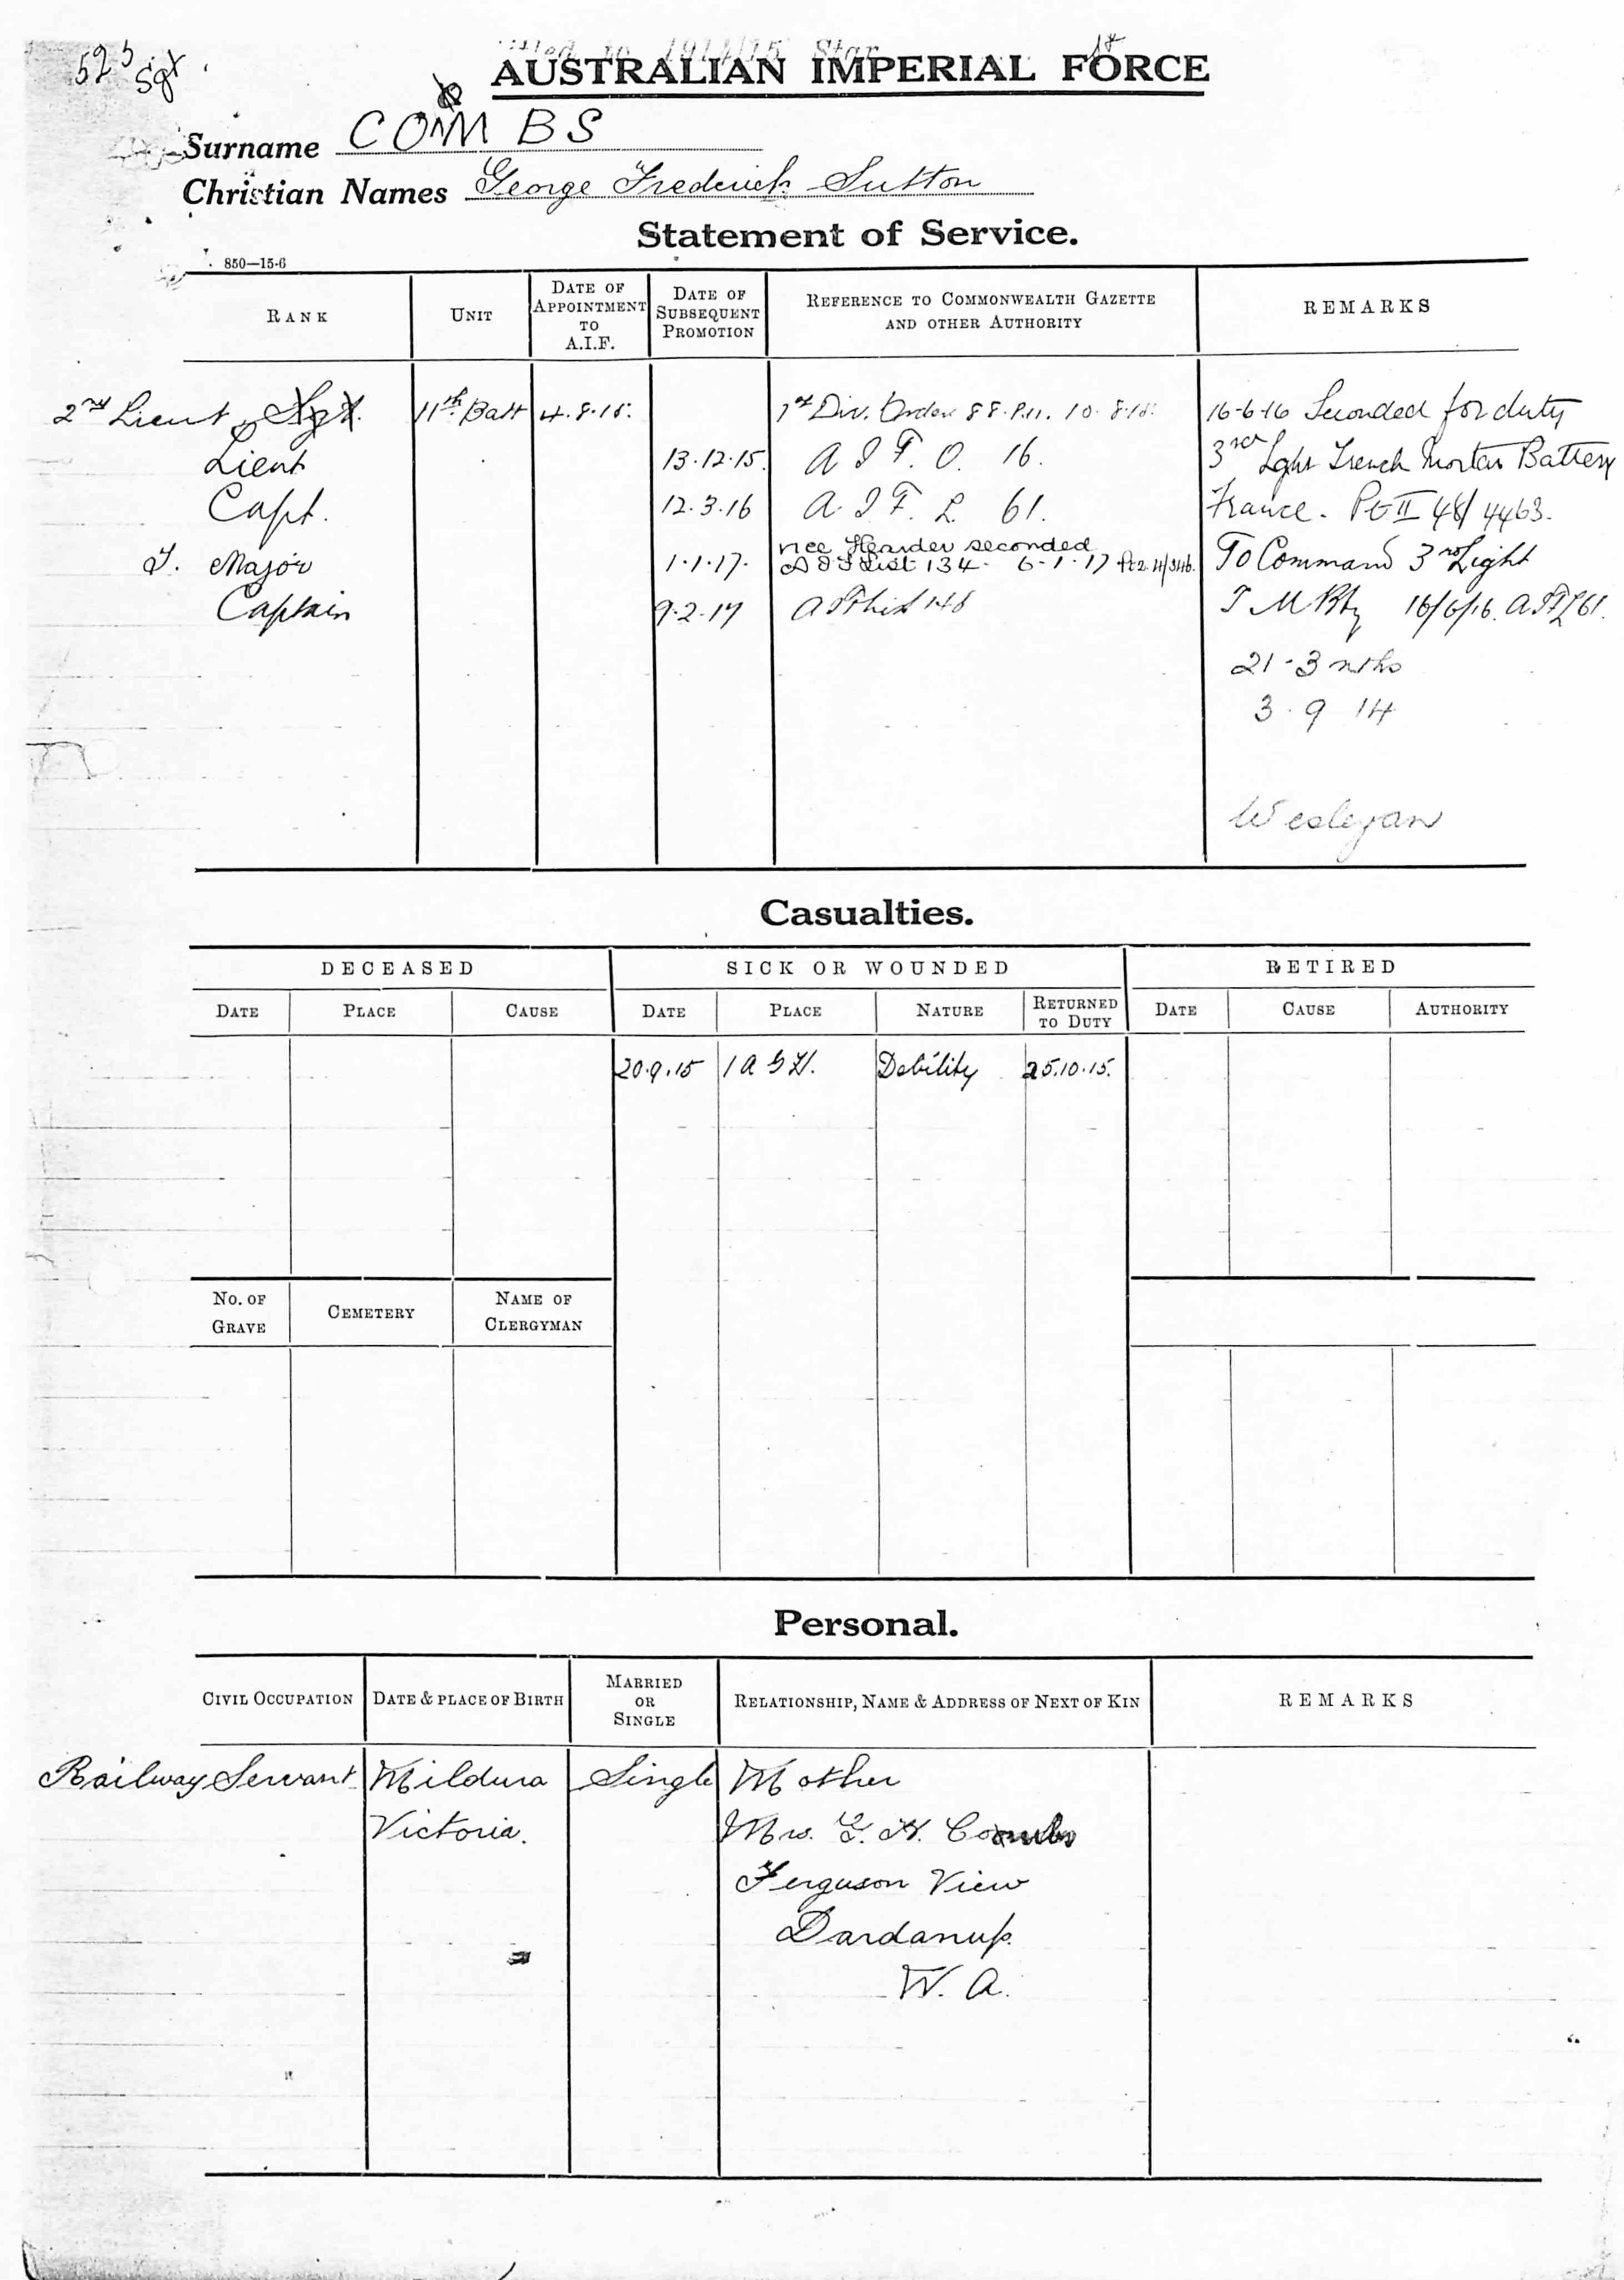 525 Sgt
1914/15 Star
AUSTRALIAN IMPERIAL FORCE
Surname COMBS
Christian Names George Frederick Sutton
Statement of Service.
850—15-6
RANK UNIT DATE OF APPOINTMENT TO A.I.F. DATE OF SUBSEQUENT PROMOTION REFERENCE TO COMMONWEALTH GAZETTE AND OTHER AUTHORITY REMARKS
2nd Lieut, Sgt. 11th Batt 4.8.15. 1st Div. Order 88. 10.8.15. 16-6-16 Seconded for duty
Lieut 13.12.15. A I F. O. 16. 3rd Light Trench Mortar Battery
Capt. 12.3.16 A. I F. L. 61. France. Pt II 48/4463.
vice Hearder seconded
T. Major 1.1.17. A I F List 134. 6-1-17 To Command 3rd Light
Captain 9.2.17 AIF List 148 T M Bty 16/6/16. A.I.F.L 61.
21-3 mths
3 . 9 14
Wesleyan
Casualties.
DECEASED SICK OR WOUNDED RETIRED
DATE PLACE CAUSE DATE PLACE NATURE RETURNED TO DUTY DATE CAUSE AUTHORITY
20.9.15 1 A G H. Debility 25.10.15.
NO. OF GRAVE CEMETERY NAME OF CLERGYMAN
Personal.
CIVIL OCCUPATION DATE & PLACE OF BIRTH MARRIED OR SINGLE RELATIONSHIP, NAME & ADDRESS OF NEXT OF KIN REMARKS
Railway Servant Mildura Single Mother
Victoria. Mrs. G. H. Combs
Ferguson View
Dardanup.
W. A.